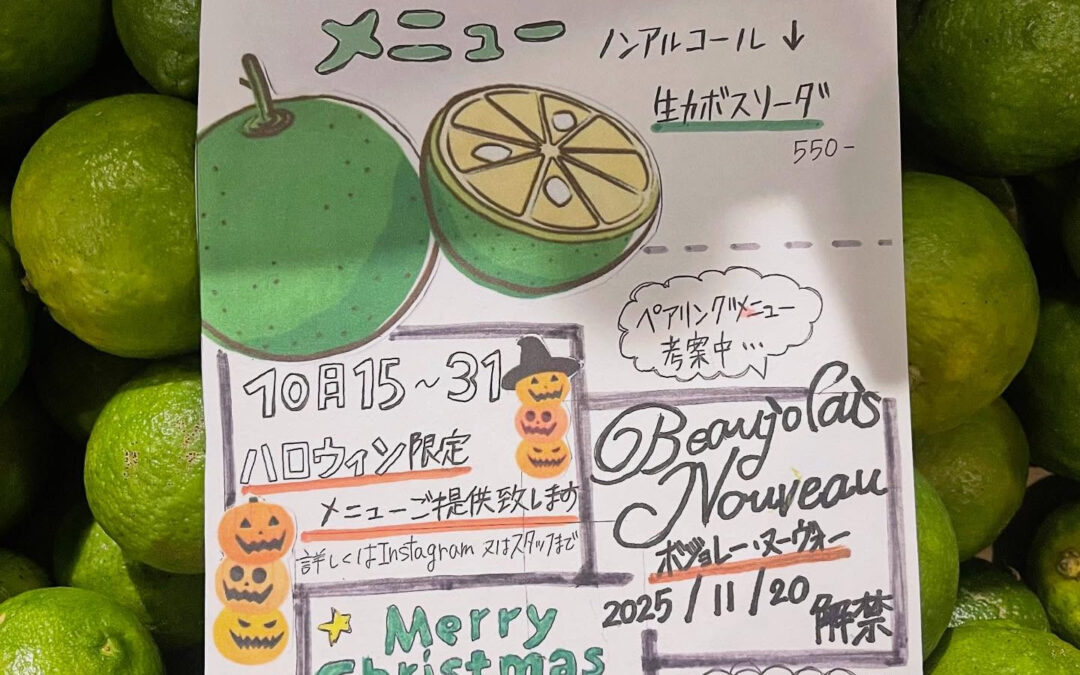 メニュー
ノンアルコール↓
生カボスソーダ
550-
ペアリングメニュー
考案中…
10月15~31
ハロウィン限定
メニューご提供致します
詳しくはInstagram 又はスタッフまで
Beaujolais
Nouveau
ボジョレー・ヌーヴォー
2025/11/20
解禁
Merry
Christmas